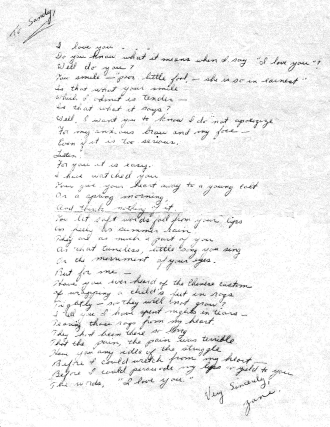 To Sandy,
I love you.
Do you know what it means when I say "I love you"?
Well do you?
You smile — "poor little fool, — she is so in earnest"
Is that what your smile —
Which I admit is tender —
Is that what it says?
Well, I want you to know I do not apologize
For my anxious brow and my face —
Even if it is too serious.
Listen.
For you it is easy.
I have watched you
You give your heart away to a young colt
On a spring morning
And think nothing of it
You let soft words fall from your lips
As easy as summer rain
They are as much a part of you
As that tuneless, little song you sing
Or the movement of your eyes.
But for me —
Have you ever heard of the Chinese custom
Of wrapping a child's feet in rags
Tightly — so they will not grow?
I tell you I have spent nights in tears —
Tearing those rags from my heart
They had been there so long
That the pain, the pain was terrible
Have you any idea of the struggle
Before I could wretch from my heart —
Before I could persuade my lips to yield to you
The words, "I love you."
Very Sincerely,
Jane